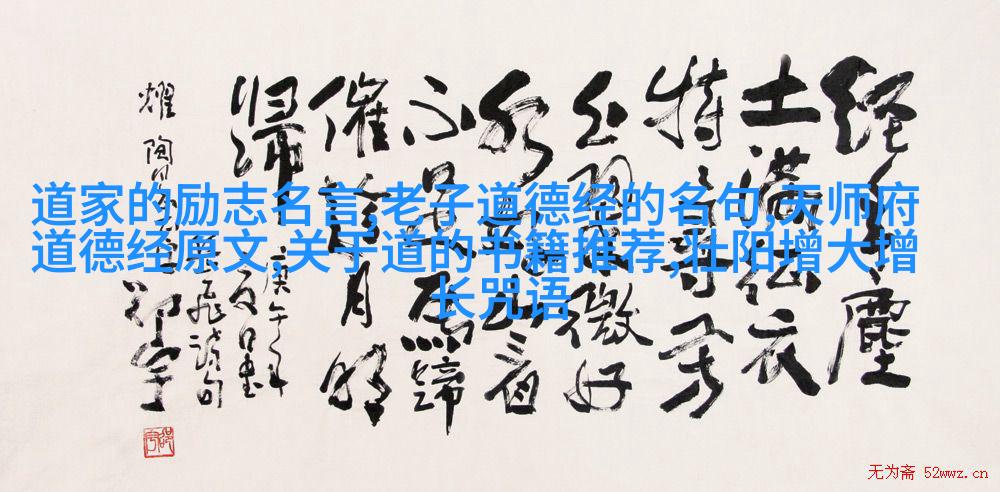 道家的励志名言,老子道德经的名句,天师府
道德经原文,关于道的书籍推荐,壮阳增大增
长咒语
经年塵
土满征衣
特特寻芳
上翠微好
水好山看
不足马蹄
催趁月明
歸
庚午年
夏日书
岳飞诗句
无为斋 52wwz.cn